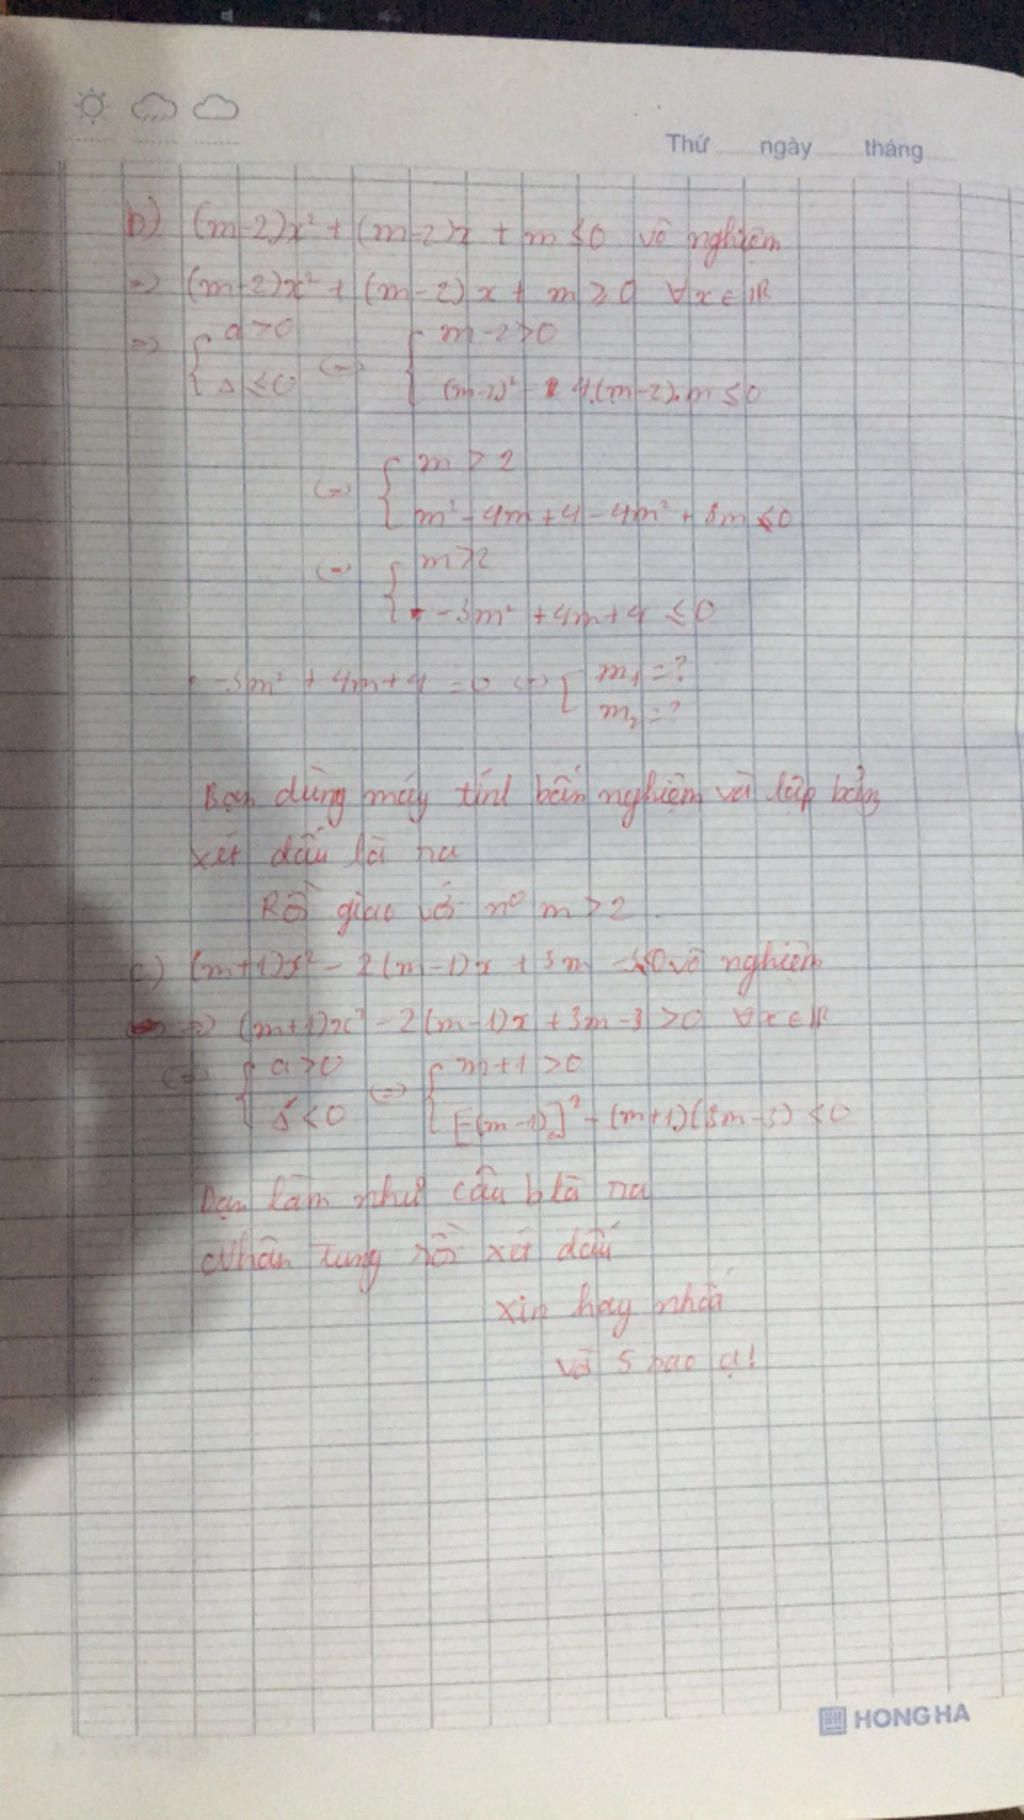 Thứ ngày tháng
b) (m-2)x² + (m-2)x + m < 0 vô nghiệm
=> (m-2)x² + (m-2)x + m ≥ 0 ∀x ∈ ℝ
=> { a > 0 (=) { m-2 > 0
Δ ≤ 0 (m-2)² - 4.(m-2).m ≤ 0
(=) { m > 2
m² - 4m + 4 - 4m² + 8m ≤ 0
(=) { m > 2
-3m² + 4m + 4 ≤ 0
-3m² + 4m + 4 = 0 (=) [ m₁ = ?
m₂ = ?
Bạn dùng máy tính bấn nghiệm và lập bản
xét dấu là ra
Rồi giao với n⁰ m > 2
c) (m+1)x² - 2(m-1)x + 3m - vô nghiệm
(m+1)x² - 2(m-1)x + 3m - 3 > 0 ∀x ∈ ℝ
(=) { a > 0 (=) { m+1 > 0
Δ' < 0 [-(m-1)]² - (m+1)(3m-3) < 0
Bạn làm như câu b là ra
Nhân tung rồi xét dấu
xin hay nhất
và 5 sao ạ!
HONG HA